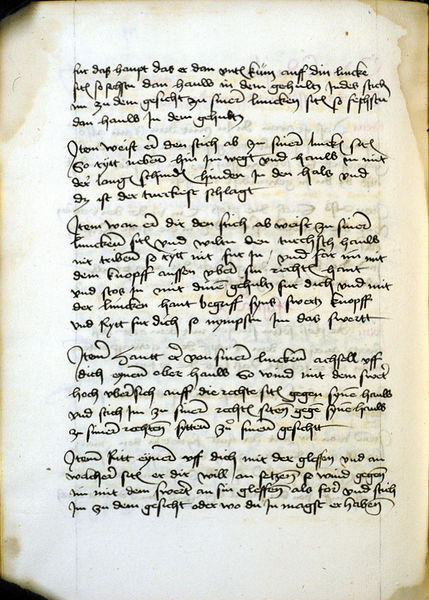 fur das haupt das er dan nutz kům auff din lincke
sitē so sichstu dan hauw in dem gehultz Indes stich
im zu dem gesicht zu sinere lincken sitē so sichstu
dan hauw In dem gehultz
Item weist er den stich ab zu sinere linckē sitē
So rytt neben hin Im wegt vnd hauw in mit
der langē schnide hinden in den hals vnd
dz ist der turckisse schlagk
Item wan er dir den stich ab weist zu sinere
lincken sitē vnd wilen den turchsth hauw
nit triben so rytt nit fur in / vnd far im mit
dem knopff aussen vber sin rechtē hant
vnd stos in mit dinē gehultz fur dich vnd mit
der lincken hant begriff syns swertz knopff
vnd Rytt fur dich so nympstu Im das swertt
Item Hautt er von sinere lincken achsell vff
dich eynen ober hauw So wind mit dem swert
hoch vbersich auff die rechte sitē gegen syne hauw
vnd stich im zu sinere rechtē sitē gegē syne hauw
zu sinere rechten sytten zů sinere gesicht
Item Ritt eyner vff dich mit der gleffen vnd an
welcher sitē er dir will an setzen so wind gegen
im mit dem swert an sin gleffen als for vnd stich
Im zu dem gesicht oder wo du in magst erhaben